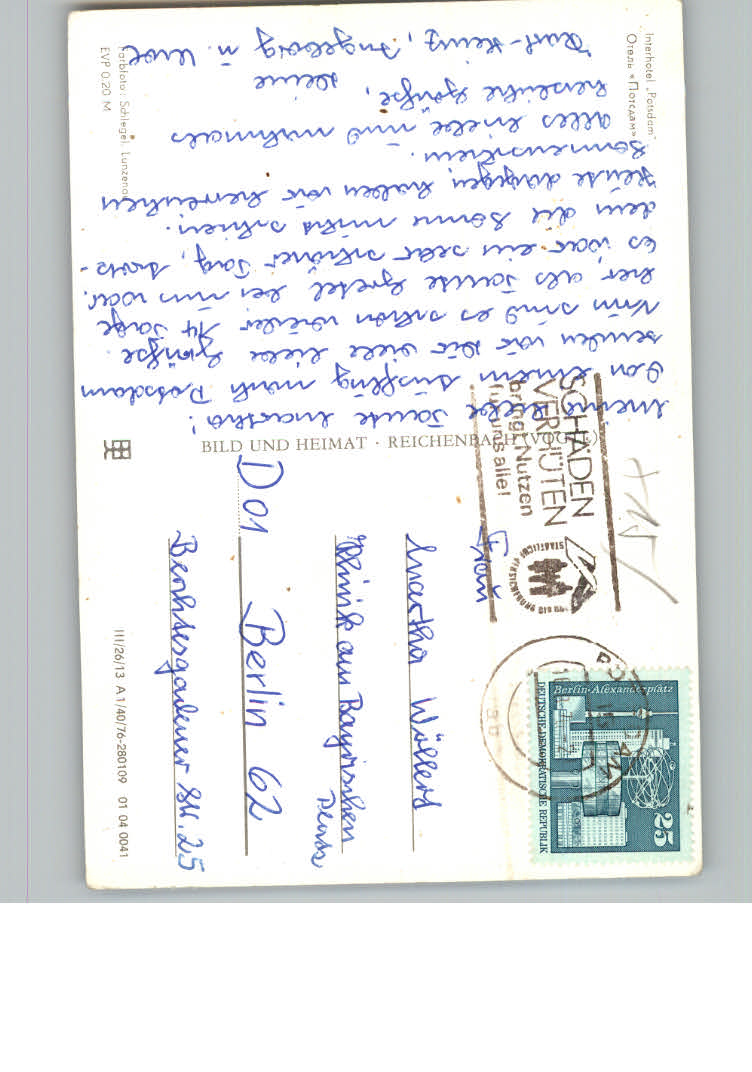 Interhotel „Potsdam"
Отель «Потсдам»
Meine liebe Tante Martha!
Von einem Ausflug nach Potsdam
senden wir Dir viele liebe Grüße.
Nun sind es schon wieder 14 Tage
her als Tante Gretel bei uns war.
Es war ein sehr schöner Tag, trotz-
dem die Sonne nicht schien.
Heute dagegen haben wir herrlichen
Sonnenschein.
Alles Liebe und nochmals
herzliche Grüße, Deine
Karl-Heinz, Ingeborg u.
Farbfoto: Schlegel, Lunzenau
EVP 0.20 M
BILD UND HEIMAT · REICHENBACH (VOGTL)
SCHÄDEN
VERHÜTEN
bringt Nutzen
für uns alle!
STAATLICHE VERSICHERUNG DER DDR
POTSDAM
Berlin-Alexanderplatz
DEUTSCHE DEMOKRATISCHE REPUBLIK
25
Frau
Martha Wollert
Klinik am Bayrischen
Platz
D 01 Berlin 62
Berchtesgadener Str. 25
III/26/13 A 1/40/76-280109 01 04 0041